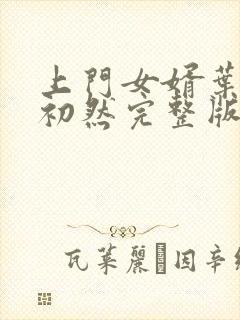 上門女婿葉
初然完整版
瓦萊麗·因辛